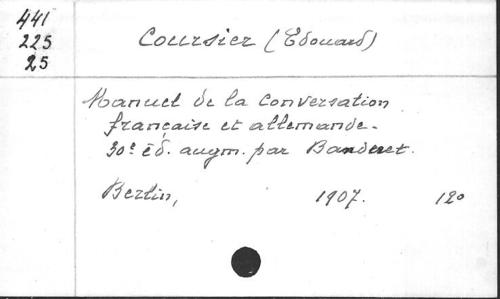 441
225
25
Coursier (Edouard)
Manuel de la conversation
française et allemande.
30e éd. augm. par Banderet.
Berlin, 1907. 12o